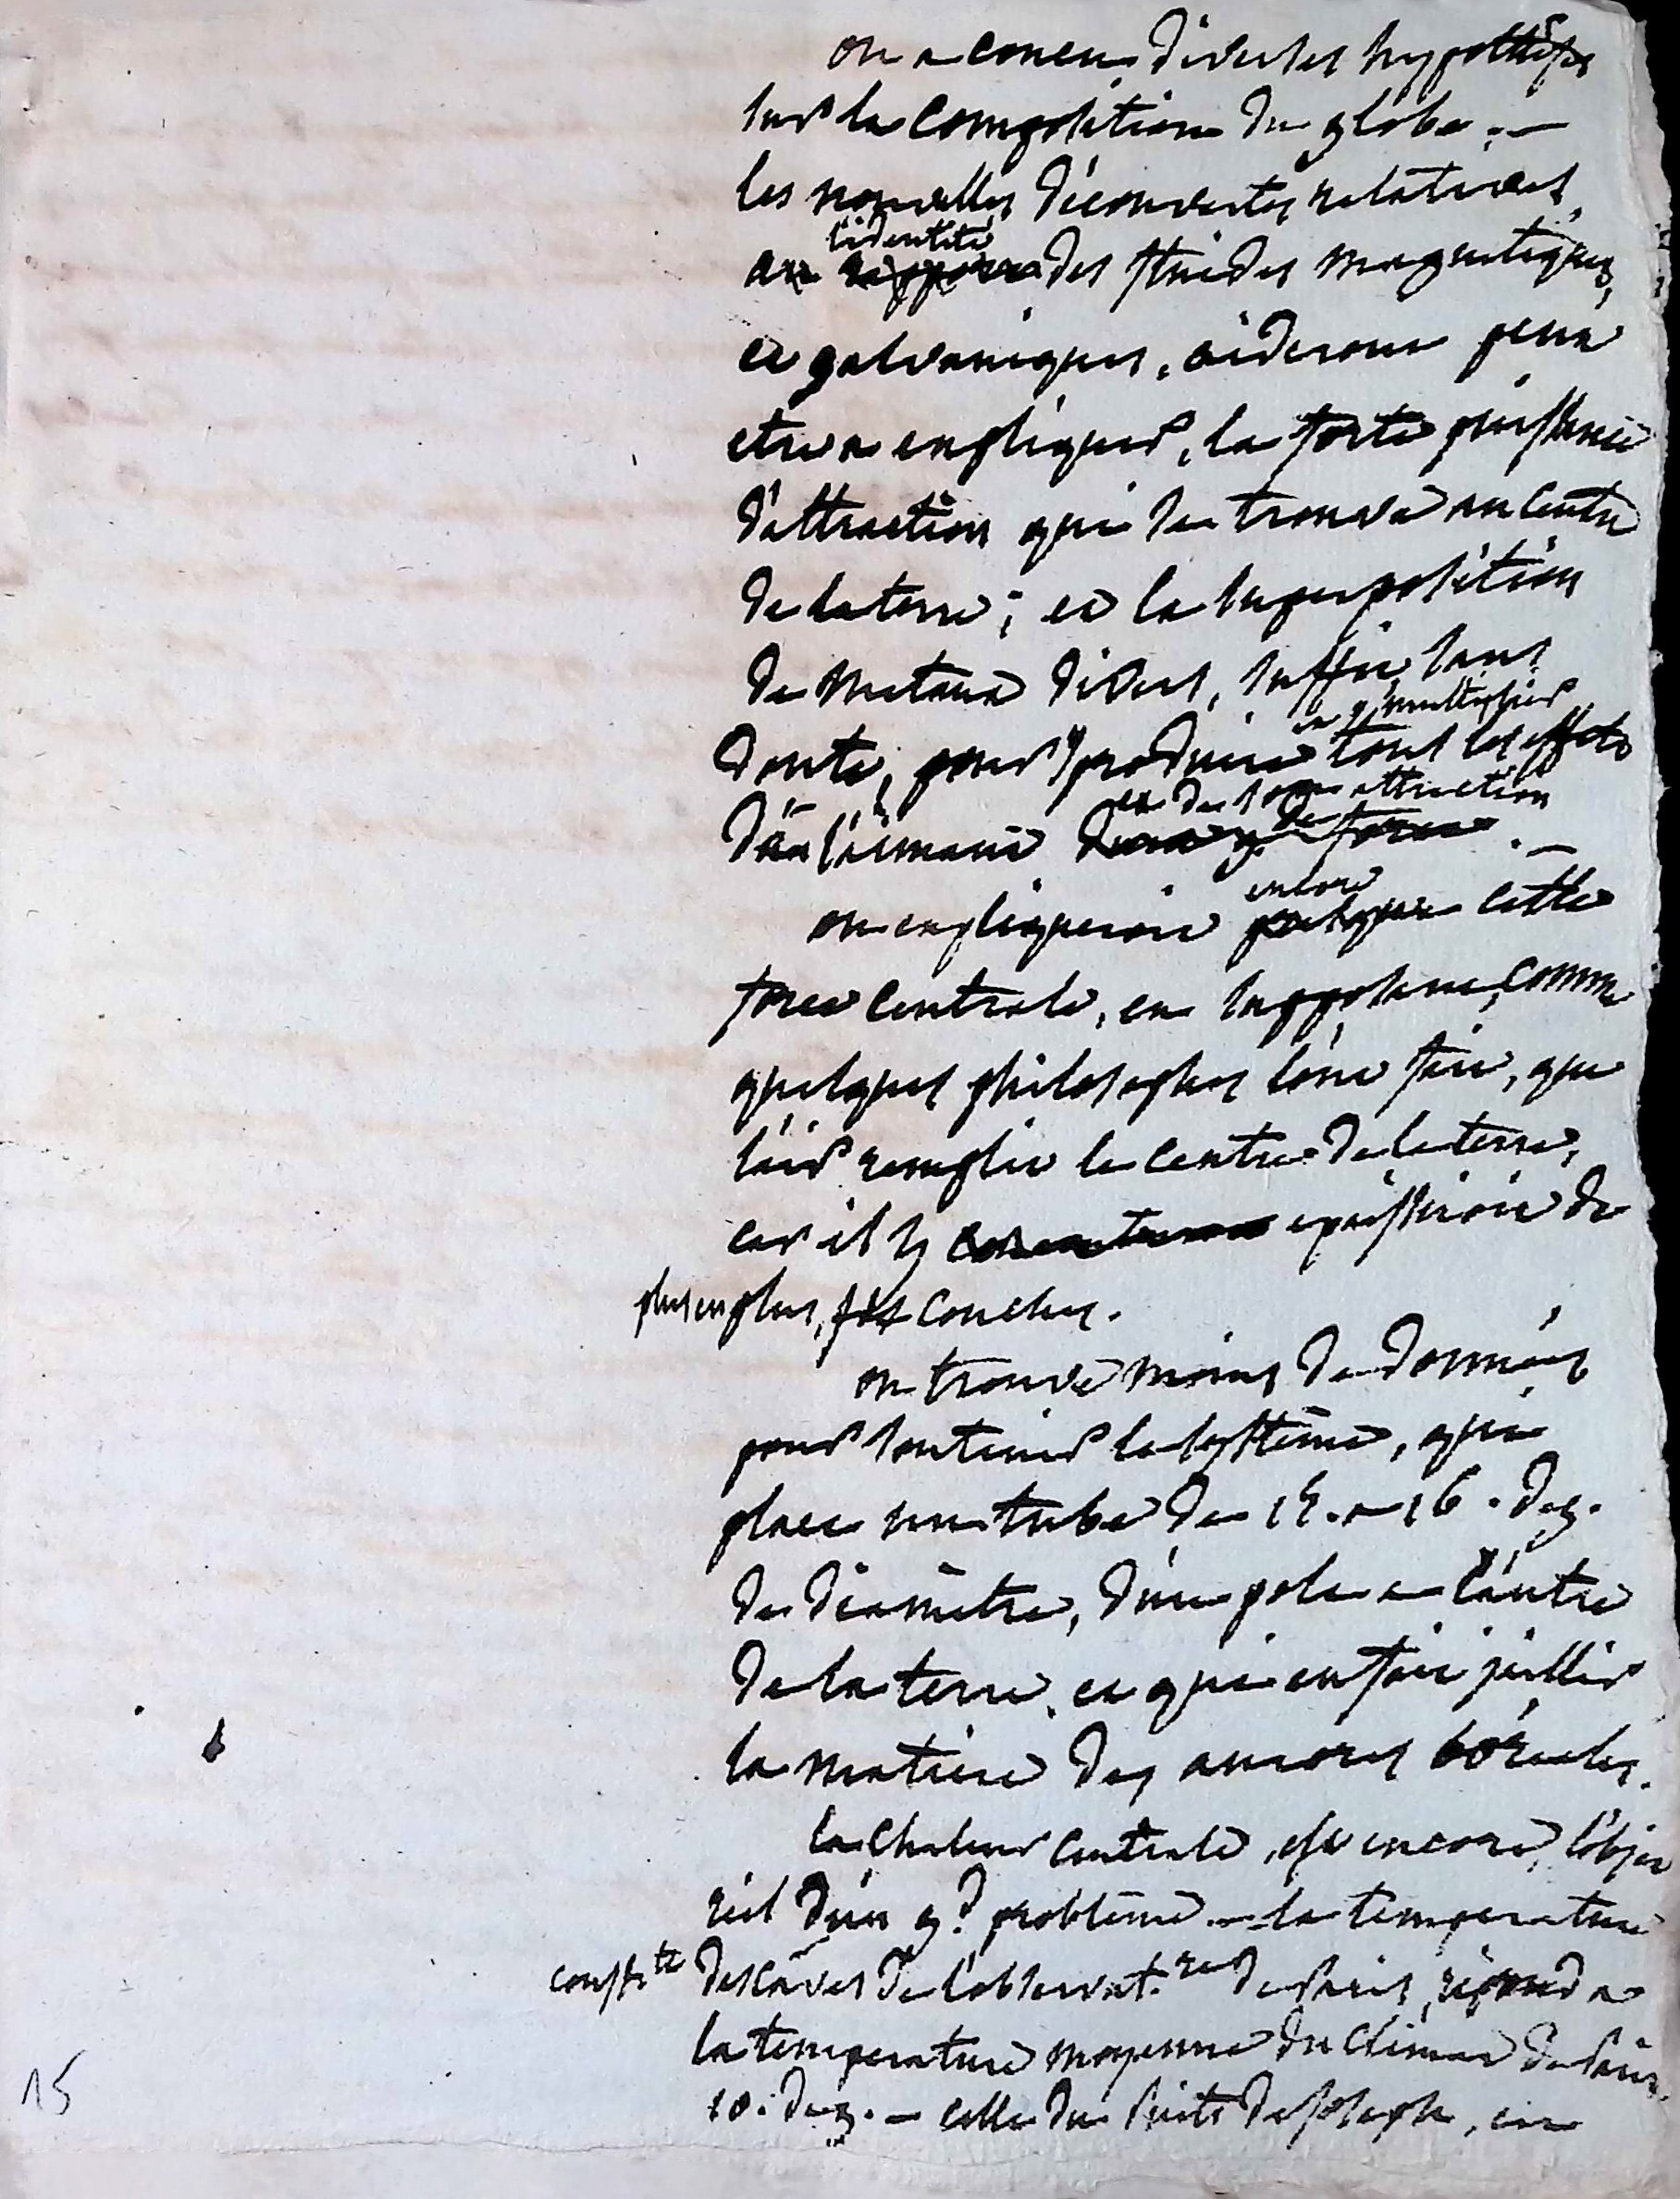 on a concu diverses hypothèses
sur la composition du globe. —
les nouvelles découvertes relatives
l'identité
au rapport des fluides magnetiques,
et galvaniques, aideront peut
etre a expliquer, la forte puissance
d'attraction qui se trouve au centre
de la terre; et la superposition
de metaux divers, suffit sans
et y multiplier
doute, pour y produire tous les effets
et de son attraction
de l'aimant
encore
on expliqueroit presque cette
force centrale, en supposant, comme
quelques philosophes l'ont fait, que
l'air remplit le centre de la terre,
car il s'y epaissiroit de
plus en plus, couches.
on trouve moins de données
pour soutenir le système, qui
place un tube de 15. a 16. deg.
de diamètre, d'un pole a l'autre
de la terre, et qui en fait jaillir
la matiere des aurores boréales.
la chaleur centrale, est encore, l'objet
réel d'un gd problème. — la temperature
constte des caves de l'observat.re de Paris, répond a
la temperature moyenne du climat de Paris
10. deg. — celle du Puits de Joseph, en
15